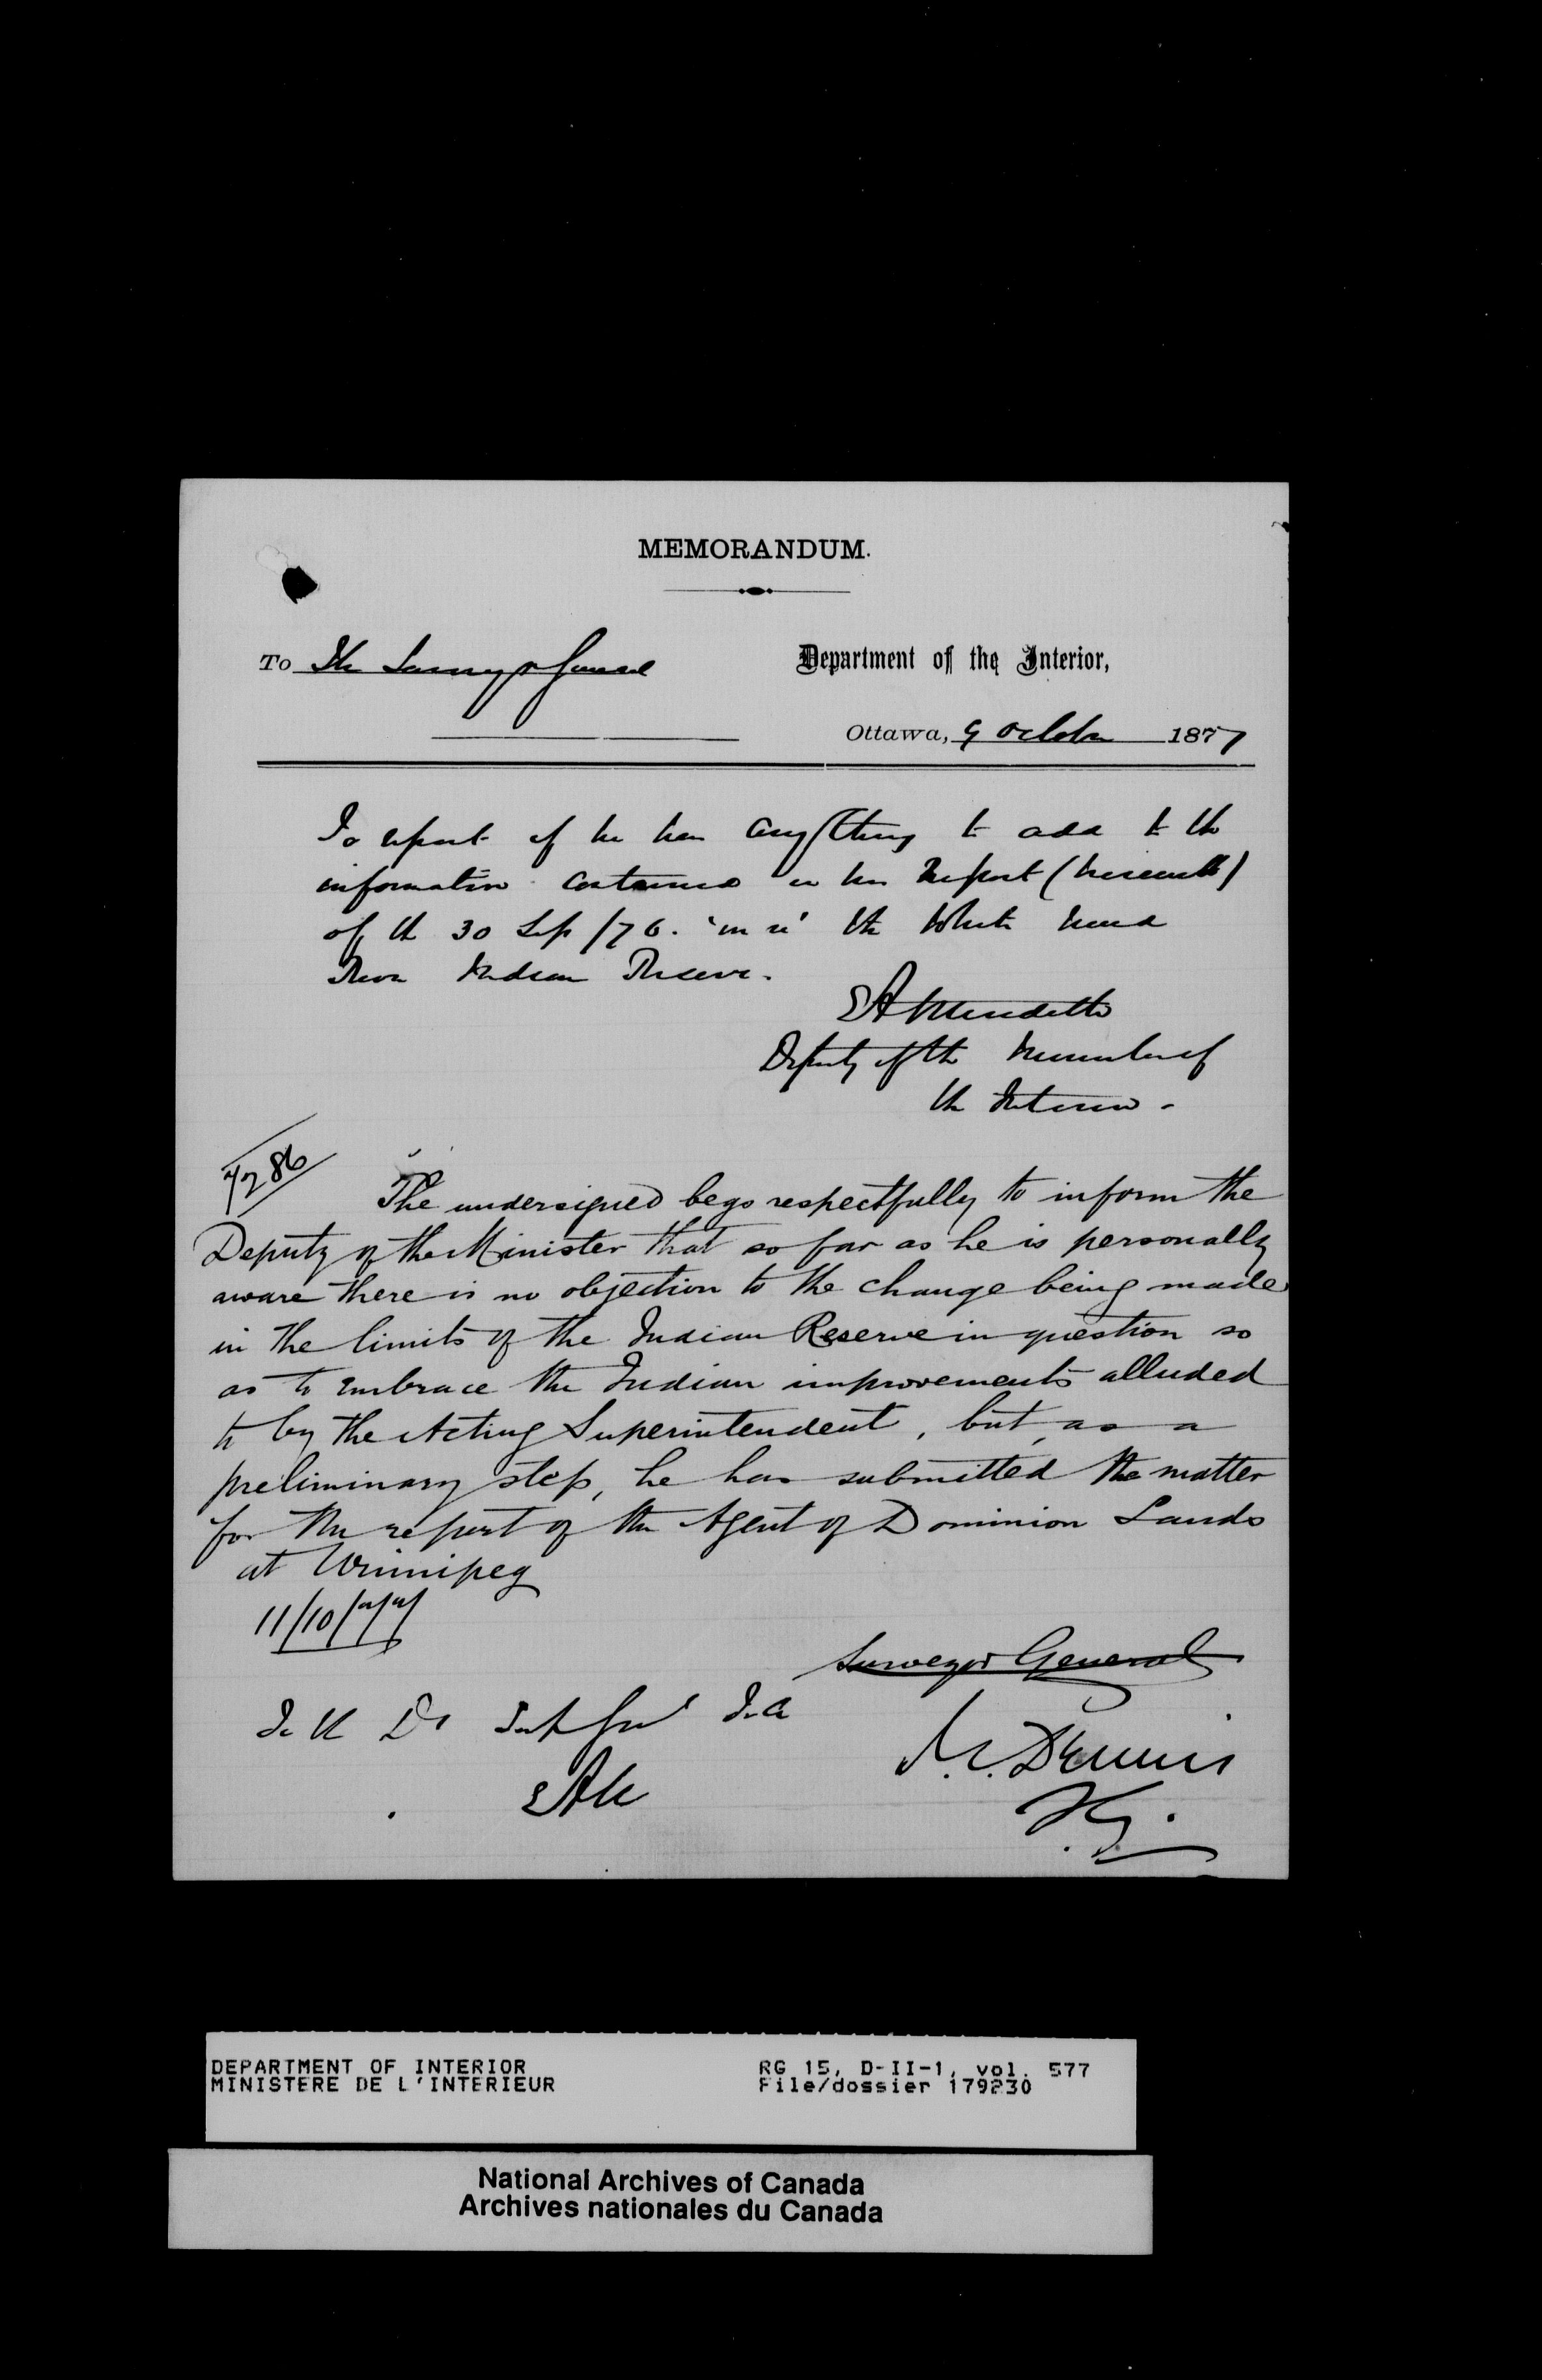 MEMORANDUM.
To The Surveyor General
Department of the Interior,
Ottawa, 9 October 1877
To report if he has anything to add to the
information contained in his Report (herewith)
of the 30 Sep /76. 'in re' the White Mud
River Indian Reserve.
EA Meredith
Deputy of the Minister of
the Interior -
7286
The undersigned begs respectfully to inform the
Deputy of the Minister that so far as he is personally
aware there is no objection to the change being made
in the limits of the Indian Reserve in question so
as to embrace the Indian improvements alluded
to by the Acting Superintendent, but, as a
preliminary step, he has submitted the matter
for the report of the Agent of Dominion Lands
at Winnipeg
11/10/77
Surveyor General
To the Dy Supt Genl I.A
EAM
J.S. Dennis
S.G.
DEPARTMENT OF INTERIOR
MINISTERE DE L'INTERIEUR
RG 15, D-II-1, vol. 577
File/dossier 179230
National Archives of Canada
Archives nationales du Canada